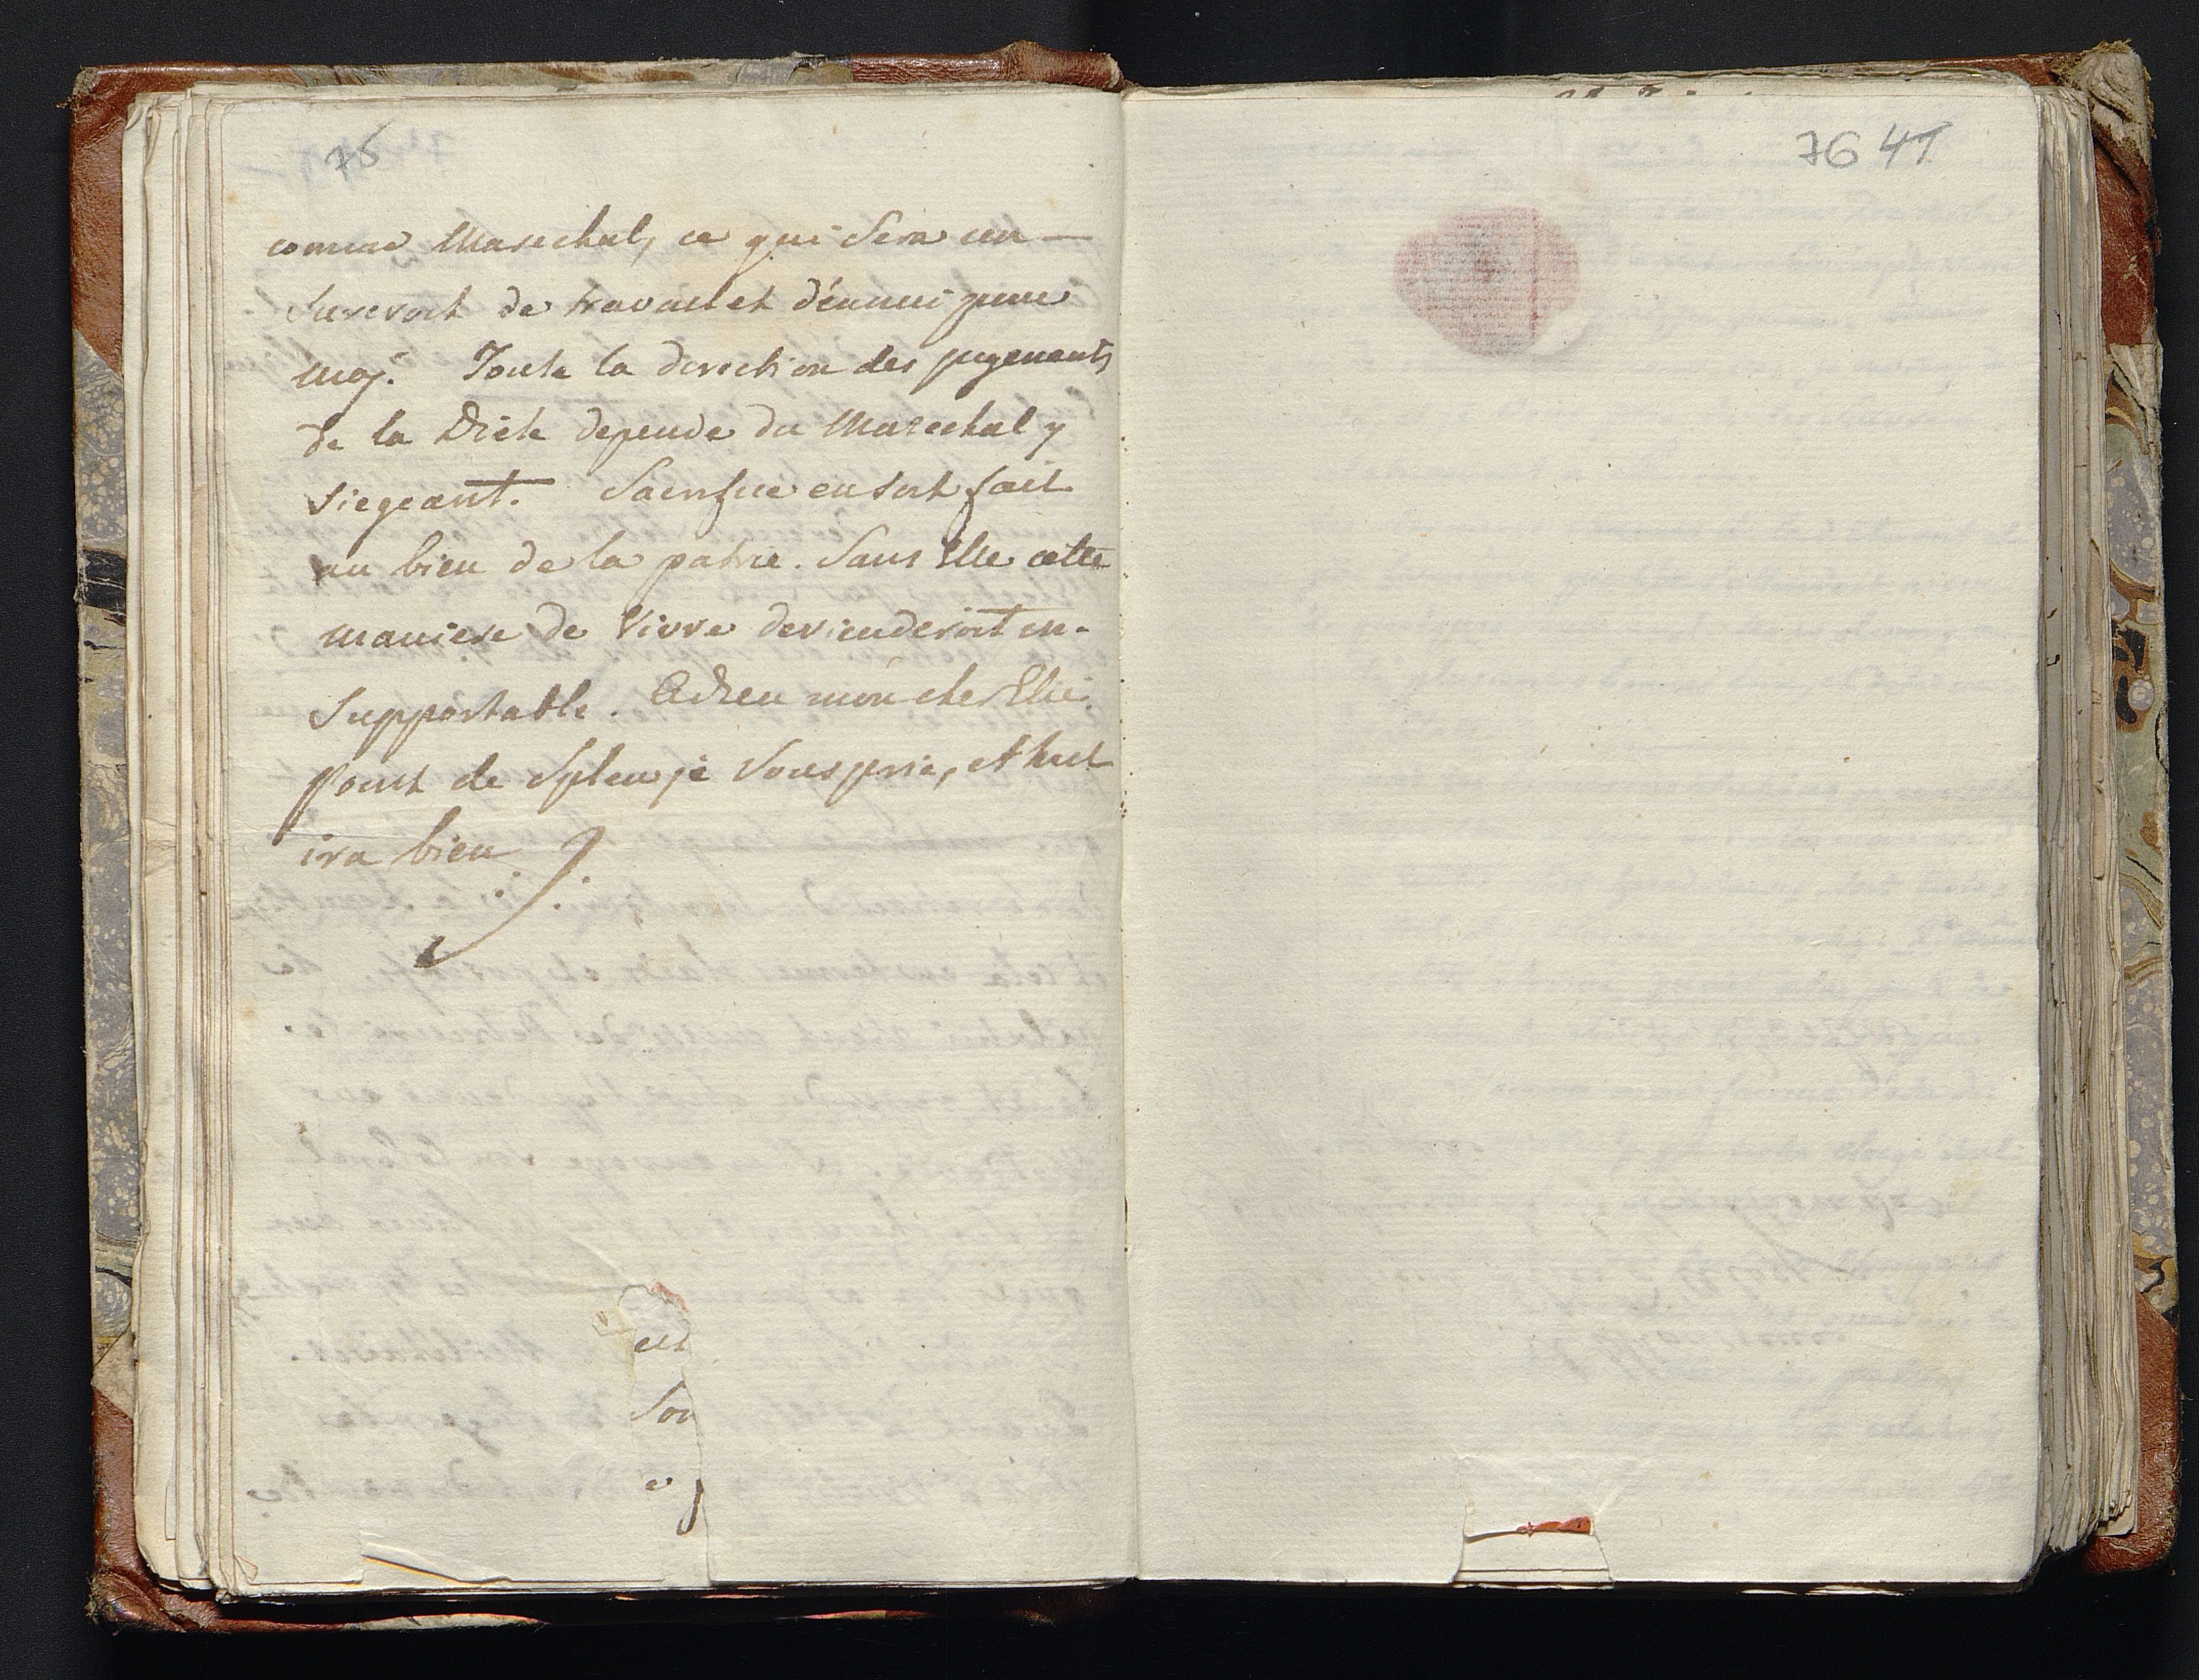 75
comme Marechal, ce qui sera un —
surcroit de travail et d'ennui pour
moj. Toute la direction des jugements
de la Diete depende du Marechal y
siegeant. Sacrifice en soit fait
au bien de la patrie. Sans Elle cette
maniere de vivre devienderoit in-
supportable. Adieu mon cher Elie.
Point de Spleen je vous prie, et tout
ira bien
et
Sou
76 41